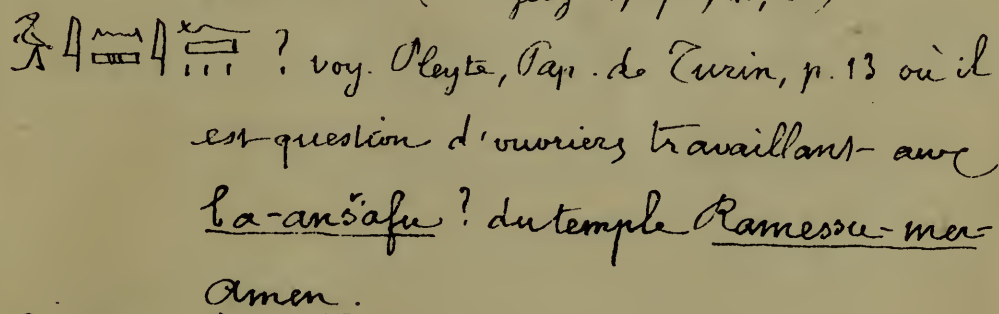 ? voy. Pleyte, Pap. de Turin, p. 13 où il
est question d'ouvriers travaillant aux
ba-anšafu ? du temple Ramessu-mer-
amen.